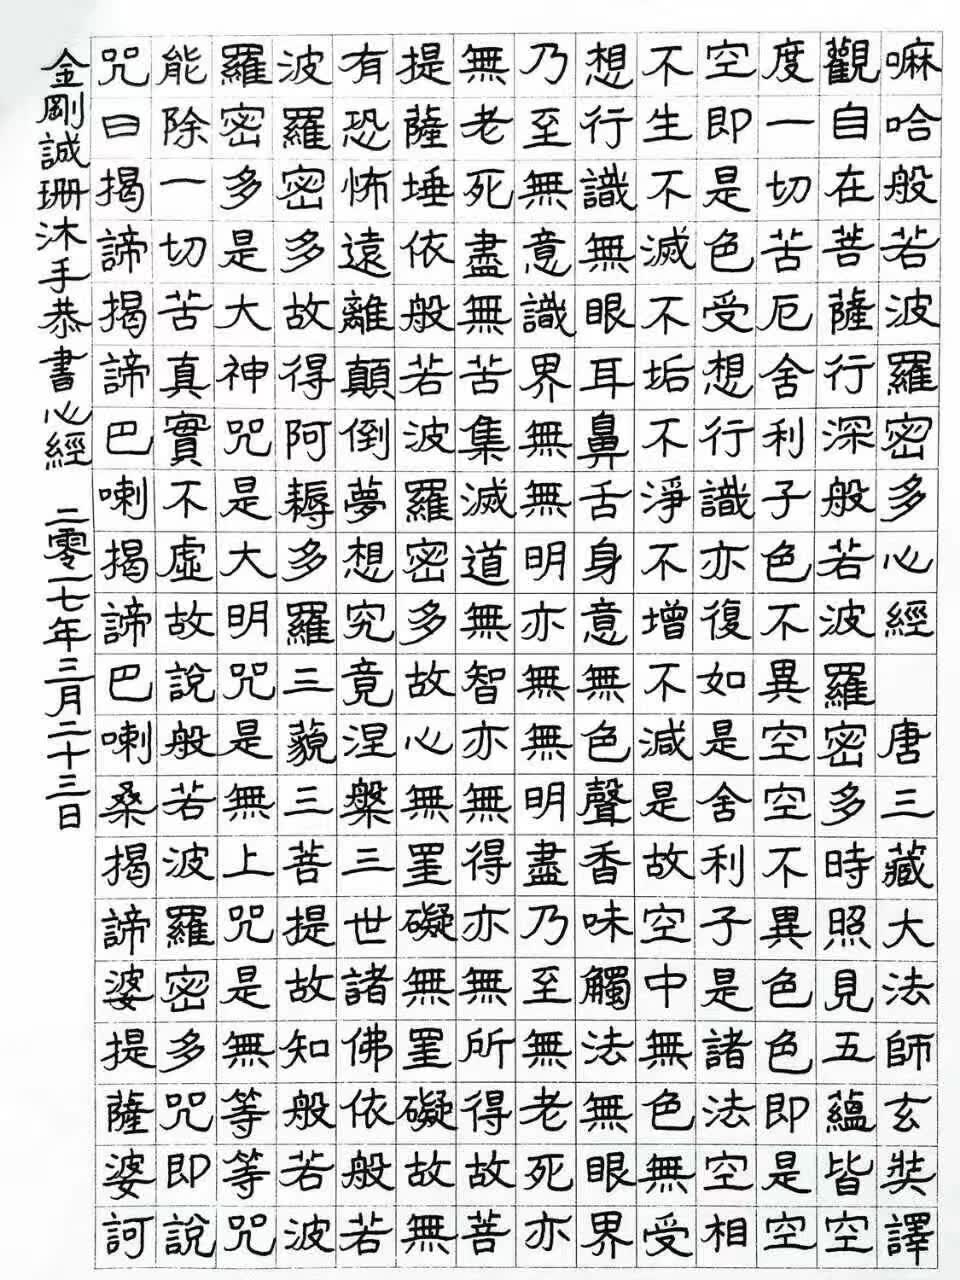 嘛哈般若波羅密多心經　唐三藏大法師玄奘譯
觀自在菩薩行深般若波羅密多時照見五蘊皆空
度一切苦厄舍利子色不異空空不異色色即是空
空即是色受想行識亦復如是舍利子是諸法空相
不生不滅不垢不淨不增不減是故空中無色無受
想行識無眼耳鼻舌身意無色聲香味觸法無眼界
乃至無意識界無無明亦無無明盡乃至無老死亦
無老死盡無苦集滅道無智亦無得亦無所得故菩
提薩埵依般若波羅密多故心無罣礙無罣礙故無
有恐怖遠離顛倒夢想究竟涅槃三世諸佛依般若
波羅密多故得阿耨多羅三藐三菩提故知般若波
羅密多是大神咒是大明咒是無上咒是無等等咒
能除一切苦真實不虛故說般若波羅密多咒即說
咒曰揭諦揭諦巴喇揭諦巴喇桑揭諦婆提薩婆訶
金剛誠珊沐手恭書心經　二零一七年三月二十三日